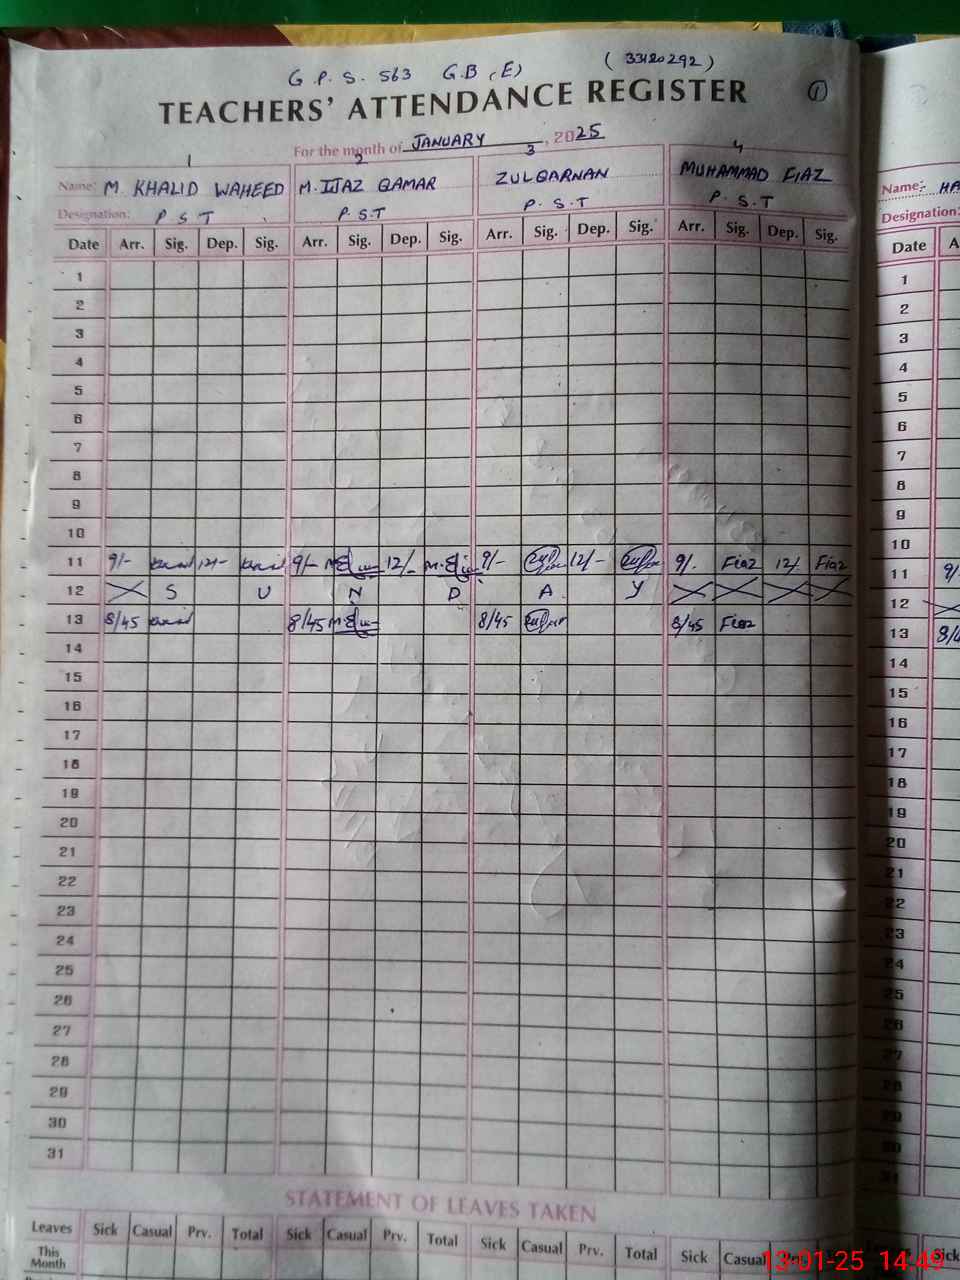 G.P.S. 563 G.B (E) (33120292)
TEACHERS' ATTENDANCE REGISTER 1
For the month of JANUARY, 2025
1 2 3 4
Name: M. KHALID WAHEED M. IJAZ QAMAR ZULQARNAN MUHAMMAD FIAZ Name:
Designation: P S T P.S.T P.S.T P.S.T Designation:
Date Arr. Sig. Dep. Sig. Arr. Sig. Dep. Sig. Arr. Sig. Dep. Sig. Arr. Sig. Dep. Sig. Date
1 1
2 2
3 3
4 4
5 5
6 6
7 7
8 8
9 9
10 10
11 9/- 12/- 9/- 12/- 9/- 12/- 9/. Fiaz 12/ Fiaz 11 9/
12 S U N D A Y 12
13 8/45 8/45 8/45 8/45 Fiaz 13
14 14
15 15
16 16
17 17
18 18
19 19
20 20
21 21
22 22
23 23
24 24
25 25
26 26
27 27
28 28
29 29
30 30
31 31
STATEMENT OF LEAVES TAKEN
Leaves Sick Casual Prv. Total Sick Casual Prv. Total Sick Casual Prv. Total Sick Casual
This Month
13-01-25 14:49